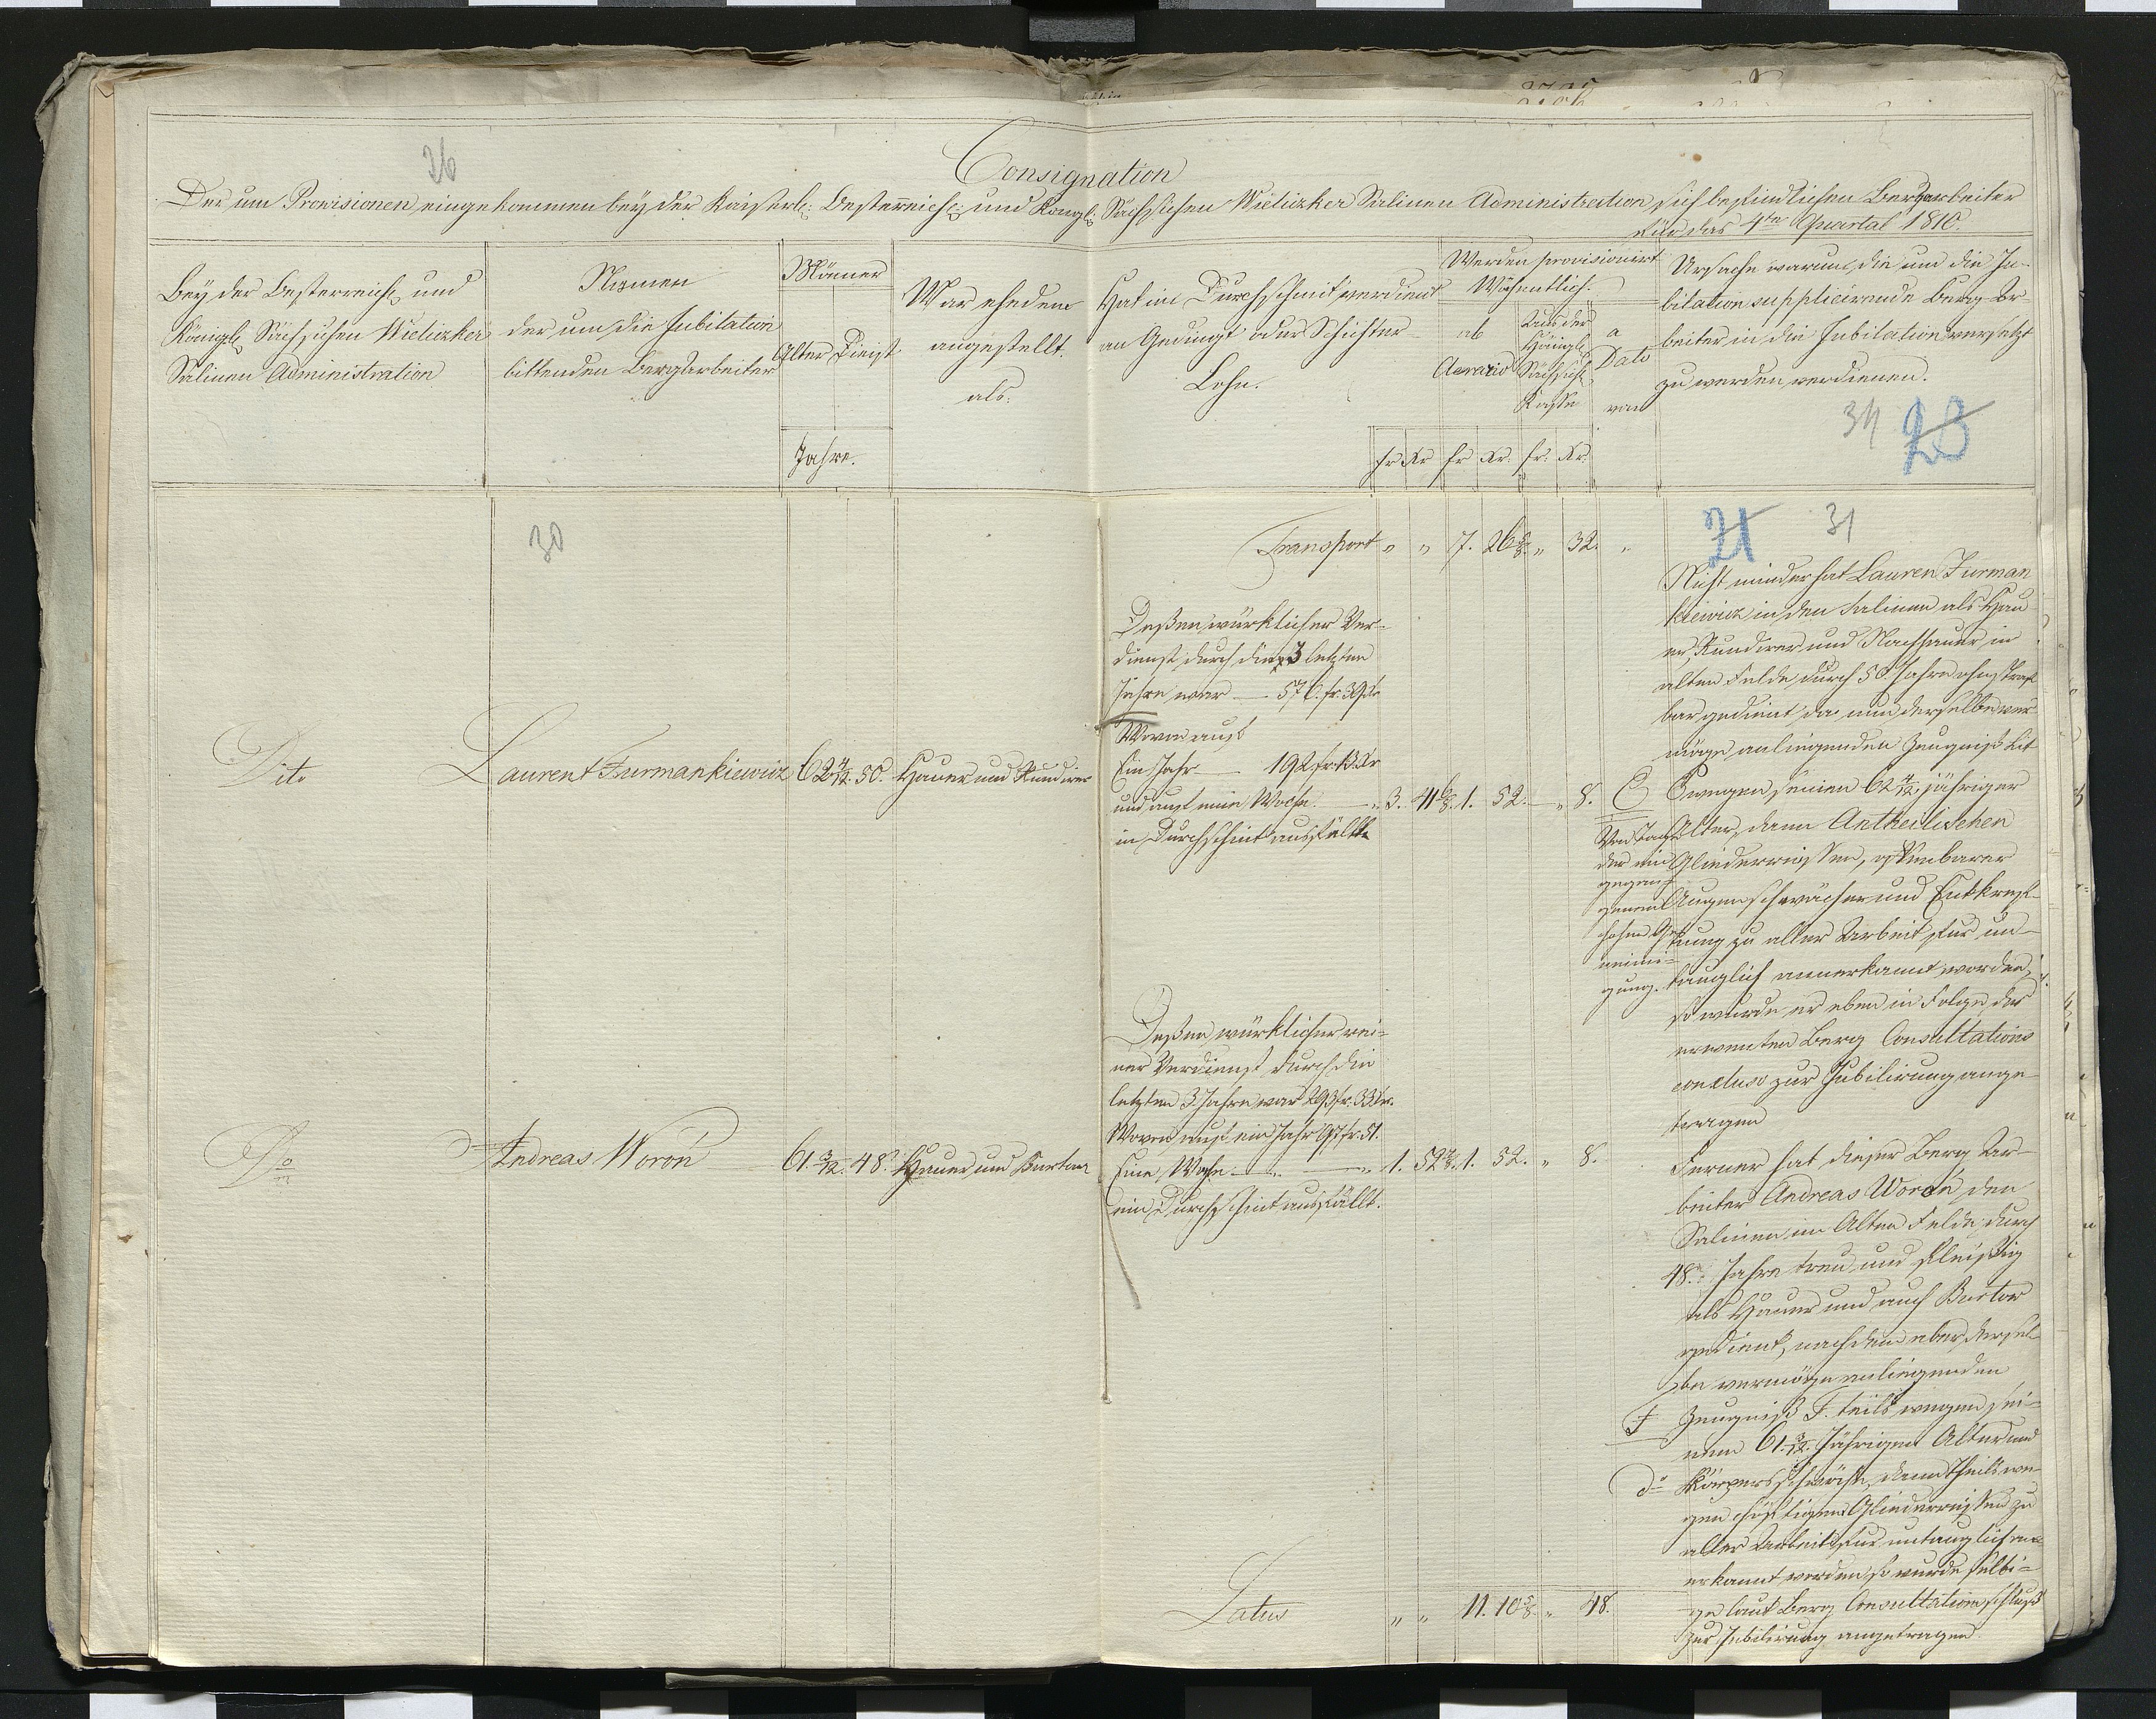 26
Consignation
Der um Provisionen eingekommen bey der Kaiserl: Oesterreich: und Königl: Sächsischen Wieliczker Salinen Administration sich befindlichen Bergarbeiter
für das 4te Quartal 1810.
Bey der Oesterreich: und
Königl: Sächsischen Wieliczker
Salinen Administration
Namen
der um die Jubilation
bittenden Bergarbeiter
Männer
Alter Dienst
Jahre.
War ehedem
angestellt
als:
Hat im Durchschnit verdient
an Gedingt oder Schichten
Lohn.
Werden provisionirt
Wöchentlich.
ab
Aerario
Aus der
Königl:
Sächsisch:
Kasse
a
Dato
von
fr Xr fr Xr. fr. Xr.
Ursache warum die um die Ju-
bilation supplicirende Berg Ar-
beiter in die Jubilation versetzt
zu werden verdienen.
34 28
30
21 31
Transport " " 7. 26 6/8 " 32. "
Dito
Laurent Furmankiewicz 62 4/12. 50. Hauer und
Deßen würklicher Ver-
dienst durch die 3 letzten
Jahre war — 576. fr. 39 Xr
Wovon auf
Ein Jahr — 192 fr. 13 Xr
und auf eine Woche — " 3. 41 6/8. 1. 52. — " 8.
in Durchschnit ausfällt
E
Von Tage
der
gegen
nemi-
gung.
Nicht minder hat Lauren Furman
kiewicz in den Salinen als Hau-
er, und Nachhauer in
alten Felde durch 50 Jahre ohnstraf
bar gedient da nun derselbe ver-
möge anliegenden Zeugniß Lit
E wegen seinen 62 4/12 jähriger
Alter, dann Antheilischen
Gliederreissen, offenbarer
Augenschwäche und Entkräf-
tung zu aller Arbeit für un-
tauglich anerkannt worden,
so wurde er eben in Folge der
erwenten Berg Consultations
concluso zur Jubilirung ange-
tragen
Do
Andreas Woroń 61. 3/12. 48. Hauer und Burtner
Deßen würklicher rei-
ner Verdienst durch die
letzten 3 Jahre war 293 fr. 33 Xr.
Wovon auf ein Jahr 97 fr. 51.
Eine Woche — " 1. 52 6/8. 1. 52. " 8.
ein Durchschnit ausfällt.
F
do
Ferner hat dieser Berg Ar-
beiter Andreas Woroń den
Salinen im Alten Felde durch
48. Jahre treu und fleißig
als Hauer und auch Burtner
gedient, nachdem aber dersel-
be vermöge anliegenden
Zeugniß F. teils wegen sei-
nem 61. 3/12. Jährigen Alter und
Körpersschwäche, dann theils we-
gen Gliederreissen zu
aller Arbeit für untauglich an-
erkannt worden, so wurde selbi-
ge laut Berg Consultationsschluß
zur Jubilirung angetragen.
Latus " " 11. 10 6/8. " 48.